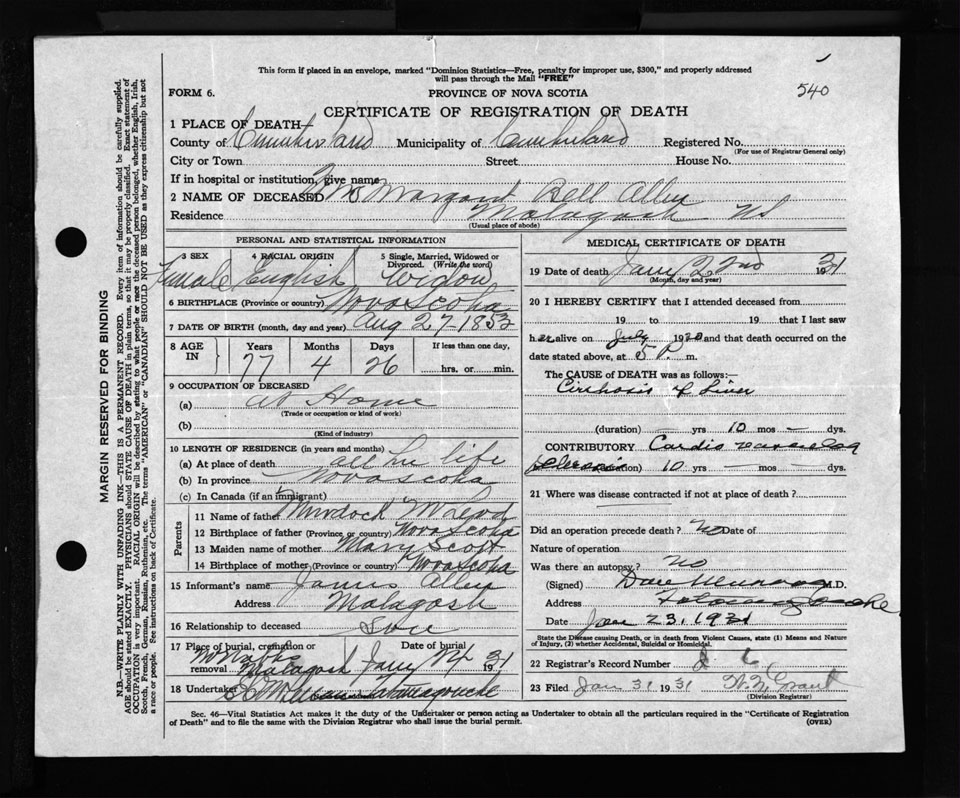 This form if placed in an envelope, marked "Dominion Statistics—Free, penalty for improper use, $300," and properly addressed
will pass through the Mail "FREE"
540
FORM 6.
PROVINCE OF NOVA SCOTIA
CERTIFICATE OF REGISTRATION OF DEATH
1 PLACE OF DEATH—
County of Cumberland Municipality of Cumberland Registered No.
(For use of Registrar General only)
City or Town Street House No.
If in hospital or institution, give name
2 NAME OF DECEASED Mrs Margaret Bell Allen
Residence Malagash NS
(Usual place of abode)
PERSONAL AND STATISTICAL INFORMATION
3 SEX 4 RACIAL ORIGIN 5 Single, Married, Widowed or Divorced. (Write the word)
Female English Widow
6 BIRTHPLACE (Province or country) Nova Scotia
7 DATE OF BIRTH (month, day and year) Aug 27-1853
8 AGE IN Years Months Days If less than one day,
77 4 26 hrs. or min.
9 OCCUPATION OF DECEASED
(a) at Home
(Trade or occupation or kind of work)
(b)
(Kind of industry)
10 LENGTH OF RESIDENCE (in years and months)
(a) At place of death all her life
(b) In province Nova Scotia
(c) In Canada (if an immigrant)
Parents
11 Name of father Murdock McLeod
12 Birthplace of father (Province or country) Nova Scotia
13 Maiden name of mother Mary Scott
14 Birthplace of mother (Province or country) Nova Scotia
15 Informant's name James Allen
Address Malagash
16 Relationship to deceased Son
17 Place of burial, cremation or removal Date of burial
Malagash Jany 24 1931
18 Undertaker Tatamagouche
MEDICAL CERTIFICATE OF DEATH
19 Date of death Jany 22nd 1931
(Month, day and year)
20 I HEREBY CERTIFY that I attended deceased from
19 to 19 that I last saw
her alive on July 1930 and that death occurred on the
date stated above, at 5 P. m.
The CAUSE of DEATH was as follows:—
Cirrhosis of Liver
(duration) — yrs 10 mos — dys.
CONTRIBUTORY Cardio vascular
(duration) 10 yrs — mos — dys.
21 Where was disease contracted if not at place of death?
Did an operation precede death? No Date of
Nature of operation
Was there an autopsy? No
(Signed) Dan Murray M.D.
Address Tatamagouche
Date Jan 23, 1931
State the Disease causing Death, or in death from Violent Causes, state (1) Means and Nature
of Injury, (2) whether Accidental, Suicidal or Homicidal.
22 Registrar's Record Number 6
23 Filed Jan 31 1931 Grant
(Division Registrar)
Sec. 46—Vital Statistics Act makes it the duty of the Undertaker or person acting as Undertaker to obtain all the particulars required in the "Certificate of Registration
of Death" and to file the same with the Division Registrar who shall issue the burial permit.
(OVER)
MARGIN RESERVED FOR BINDING
N.B.—WRITE PLAINLY WITH UNFADING INK—THIS IS A PERMANENT RECORD. Every item of information should be carefully supplied.
AGE should be stated EXACTLY. PHYSICIANS should STATE CAUSE OF DEATH in plain terms, so that it may be properly classified. Exact statement of
OCCUPATION is very important. RACIAL ORIGIN will be described by stating to what people or race the deceased person belonged, whether English, Irish,
Scotch, French, German, Russian, Ruthenian, etc. The terms "AMERICAN" or "CANADIAN" SHOULD NOT BE USED as they express citizenship but not
a race or people. See instructions on back of Certificate.